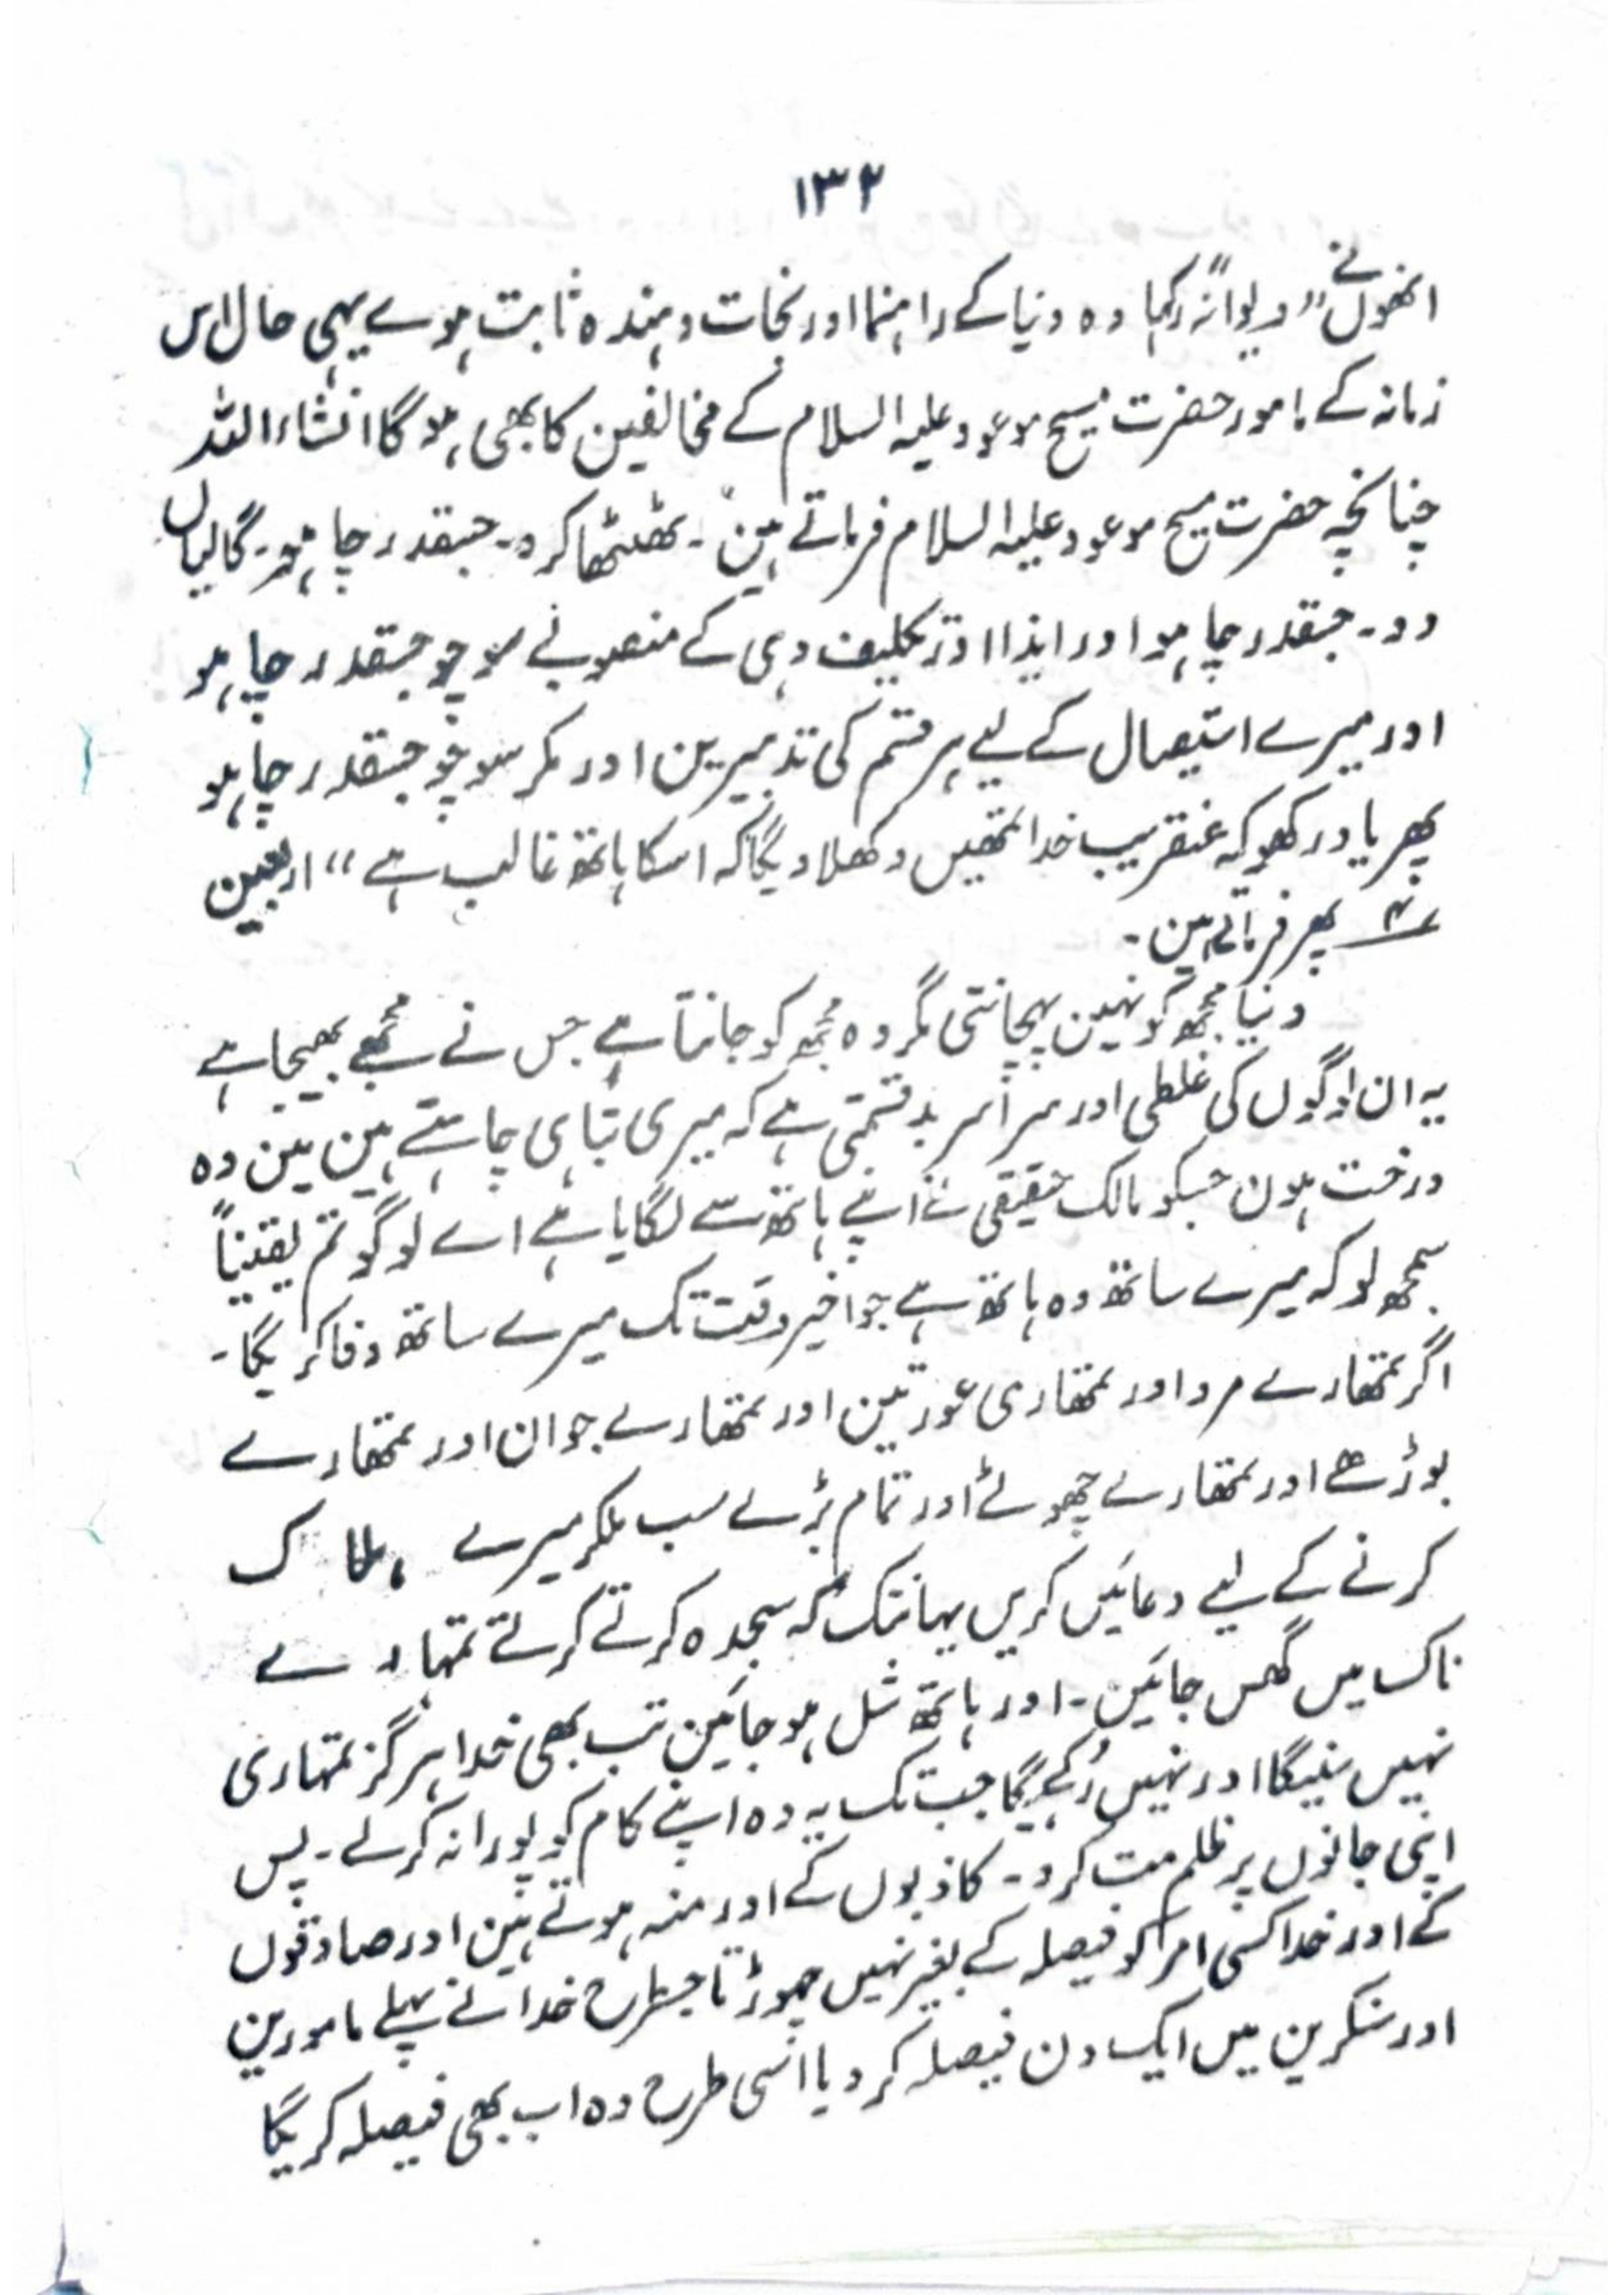 ۱۳۲
انھوں نے "دیوانہ" کہا وہ دنیا کے راہنما اور نجات دہندہ ثابت ہوے یہی حال اس
زمانہ کے مامور حضرت مسیح موعود علیہ السلام کے مخالفین کا بھی ہوگا انشاء اللہ
چنانچہ حضرت مسیح موعود علیہ السلام فرماتے ہیں" ۔ ٹھٹھا کرو۔ جسقدر چاہو۔ گالیاں
دو۔ جسقدر چاہو اور ایذا اور تکلیف دہی کے منصوبے سوچو جسقدر چاہو
اور میرے استیصال کے لیے ہر قسم کی تدبیرین اور مکر سوچو جسقدر چاہو
پھر یاد رکھو کہ عنقریب خدا تمھیں دکھلا دیگا کہ اسکا ہاتھ غالب ہے" اربعین
۴ پھر فرماتے ہین۔
دنیا مجھکو نہین پہچانتی مگر وہ مجھکو جانتا ہے جس نے مجھے بھیجا ہے
یہ ان لوگوں کی غلطی اور سراسر بدقسمتی ہے کہ میری تباہی چاہتے ہین مین وہ
درخت ہون جسکو مالک حقیقی نے اپنے ہاتھ سے لگایا ہے اے لوگو تم یقیناً
سمجھ لو کہ میرے ساتھ وہ ہاتھ ہے جو اخیر وقت تک میرے ساتھ وفا کریگا۔
اگر تمھارے مرد اور تمھاری عورتین اور تمھارے جوان اور تمھارے
بوڑھے اور تمھارے چھوٹے اور تمام بڑے سب ملکر میرے ہلاک
کرنے کے لیے دعائیں کریں یہانتک کہ سجدہ کرتے کرتے تمہارے
ناک میں گھس جائین۔ اور ہاتھ شل ہو جائین تب بھی خدا ہرگز تمہاری
نہیں سنیگا اور نہیں رُکے گا جب تک یہ وہ اپنے کام کو پورا نہ کرلے۔ پس
اپنی جانوں پر ظلم مت کرو۔ کاذبوں کے اور منہ ہوتے ہین اور صادقوں
کے اور خدا کسی امر کو فیصلہ کے بغیر نہیں چھوڑتا جسطرح خدا نے پہلے مامورین
اور منکرین میں ایک دن فیصلہ کر دیا اسی طرح وہ اب بھی فیصلہ کریگا